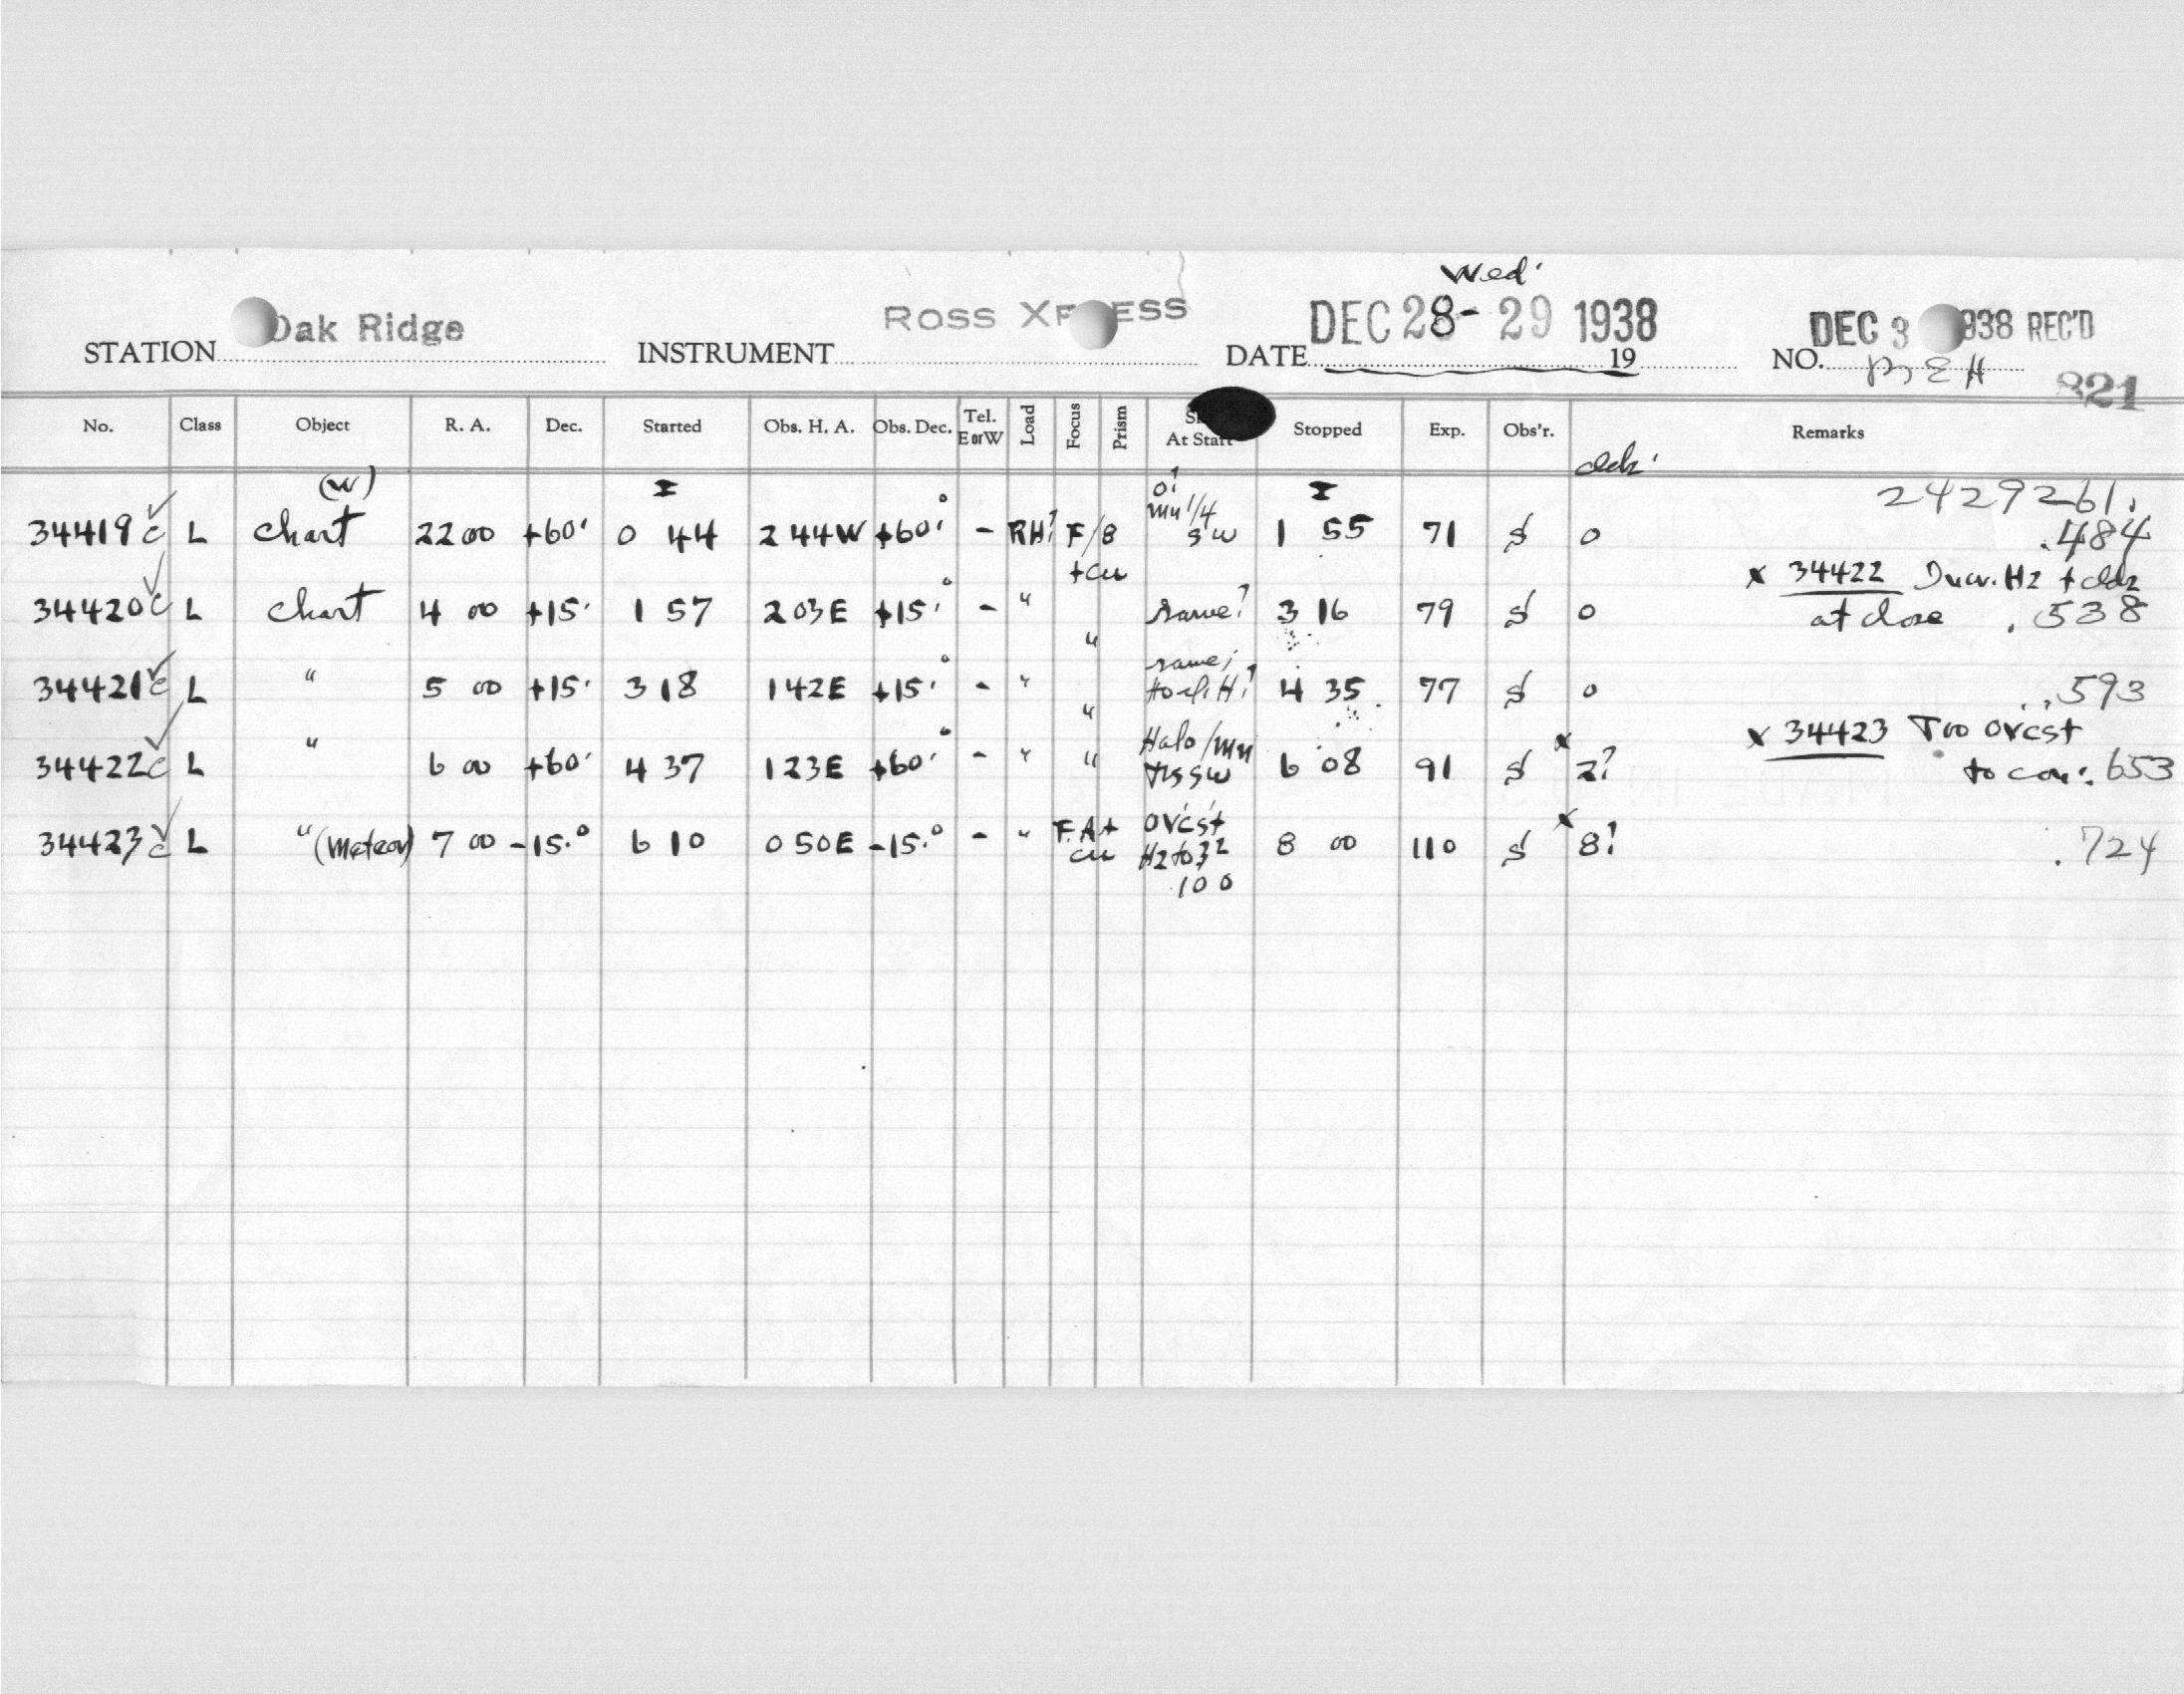 Wed.
STATION Oak Ridge INSTRUMENT ROSS XPRESS DATE DEC 28-29 1938 19 NO. DEC 3 1938 REC'D
821
No. Class Object R. A. Dec. Started Obs. H. A. Obs. Dec. Tel. E or W Load Focus Prism At Start Stopped Exp. Obs'r. Remarks
(W) 2429261.
34419 c L Chart 22 00 +60° 0 44 2 44 W +60° - RH! F/8 +cu mn 1/4 SW 1 55 71 S 0 .484
x 34422 Incr. Hz + cldz
34420 c L Chart 4 00 +15° 1 57 2 03 E +15° - " " same! 3 16 79 S 0 at close .538
34421 c L " 5 00 +15° 3 18 1 42 E +15° - " " same; 4 35 77 S 0 .593
x 34423 Too ovcst
34422 c L " 6 00 +60° 4 37 1 23 E +60° - " " Halo/mn 6 08 91 S x 2? to con: .653
34423 c L " (Meteor) 7 00 -15.° 6 10 0 50 E -15.° - " F.A+ cu ovcst Hz to 32 100 8 00 110 S x 8! .724